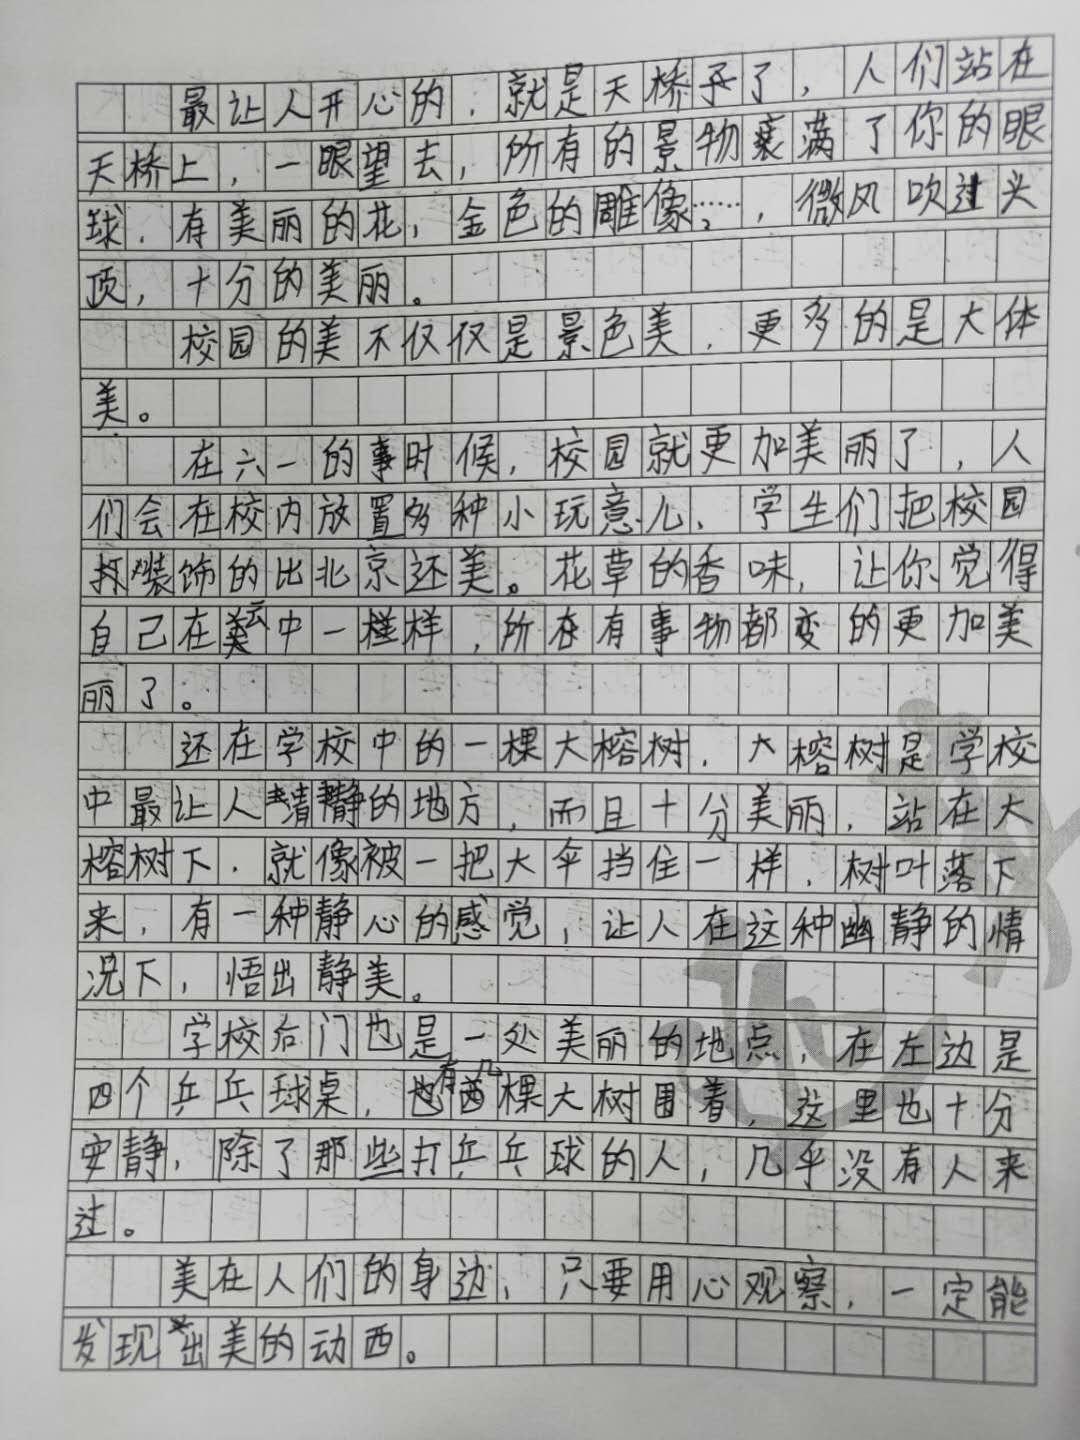 最让人开心的，就是天桥子了，人们站在
天桥上，一眼望去，所有的景物装满了你的眼
球，有美丽的花，金色的雕像……，微风吹过头
顶，十分的美丽。
校园的美不仅仅是景色美，更多的是大体
美。
在六一的事时候，校园就更加美丽了，人
们会在校内放置多种小玩意儿，学生们把校园
打装饰的比北京还美。花草的香味，让你觉得
自己在云中一样，所在有事物都变的更加美
丽了。
还在学校中的一棵大榕树，大榕树是学校
中最让人清静的地方，而且十分美丽，站在大
榕树下，就像被一把大伞挡住一样，树叶落下
来，有一种静心的感觉，让人在这种幽静的情
况下，悟出静美。
学校后门也是一处美丽的地点，在左边是
四个乒乓球桌，也有几棵大树围着，这里也十分
安静，除了那些打乒乓球的人，几乎没有人来
过。
美在人们的身边，只要用心观察，一定能
发现出美的动西。